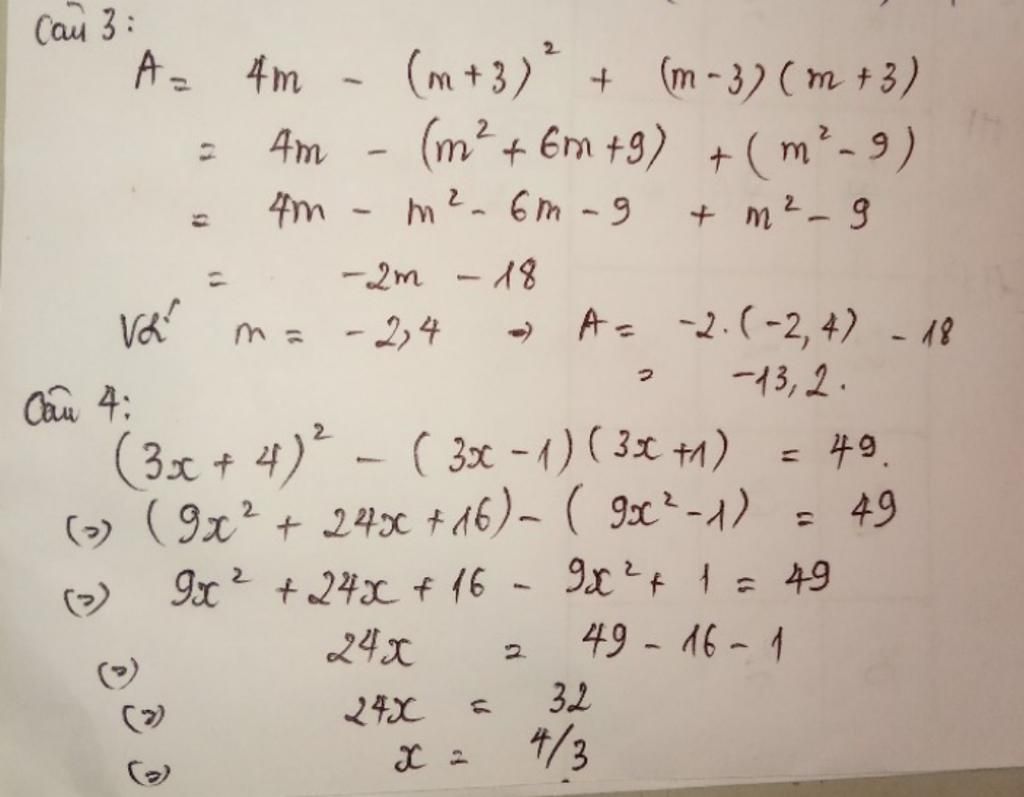 Câu 3:
A = 4m - (m+3)² + (m-3)(m+3)
= 4m - (m² + 6m + 9) + (m² - 9)
= 4m - m² - 6m - 9 + m² - 9
= -2m - 18
Với m = -2,4 => A = -2.(-2,4) - 18
= -13,2.
Câu 4:
(3x + 4)² - (3x - 1)(3x + 1) = 49.
(=) (9x² + 24x + 16) - (9x² - 1) = 49
(=) 9x² + 24x + 16 - 9x² + 1 = 49
(=) 24x = 49 - 16 - 1
(=) 24x = 32
(=) x = 4/3